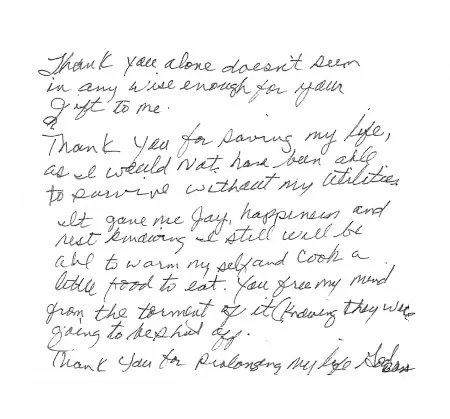 Thank you alone doesn't seem
in any wise enough for your
gift to me.
Thank you for saving my life,
as I would not have been able
to survive without my utilities
It gave me Joy, happiness and
rest knowing I still will be
able to warm my self and cook a
little food to eat. You free my mind
from the torment of it (knowing they was
going to be shut off.
Thank you for prolonging my life